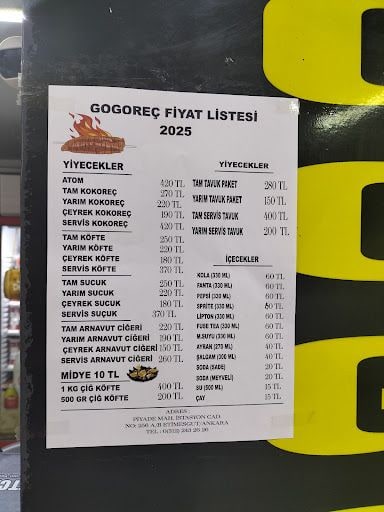 GOGOREÇ FİYAT LİSTESİ
2025
YİYECEKLER
ATOM 420 TL
TAM KOKOREÇ 270 TL
YARIM KOKOREÇ 220 TL
ÇEYREK KOKOREÇ 190 TL
SERVİS KOKOREÇ 420 TL
TAM KÖFTE 250 TL
YARIM KÖFTE 220 TL
ÇEYREK KÖFTE 180 TL
SERVİS KÖFTE 370 TL
TAM SUCUK 250 TL
YARIM SUCUK 220 TL
ÇEYREK SUCUK 180 TL
SERVİS SUÇUK 370 TL
TAM ARNAVUT CİĞERİ 220 TL
YARIM ARNAVUT CİĞERİ 190 TL
ÇEYREK ARNAVUT CİĞERİ 150 TL
SERVİS ARNAVUT CİĞERİ 260 TL
MİDYE 10 TL
1 KG ÇİĞ KÖFTE 400 TL
500 GR ÇİĞ KÖFTE 200 TL
YİYECEKLER
TAM TAVUK PAKET 280 TL
YARIM TAVUK PAKET 150 TL
TAM SERVİS TAVUK 400 TL
YARIM SERVİS TAVUK 200 TL
İÇECEKLER
KOLA (330 ML) 60 TL
FANTA (330 ML) 60 TL
PEPSİ (330 ML) 60 TL
SPRİTE (330 ML) 60 TL
LİPTON (330 ML) 60 TL
FUSE TEA (330 ML) 60 TL
M.SUYU (330 ML) 60 TL
AYRAN (270 ML) 40 TL
ŞALGAM (300 ML) 40 TL
SODA (SADE) 20 TL
SODA (MEYVELİ) 20 TL
SU (500 ML) 15 TL
ÇAY 15 TL
ADRES :
PİYADE MAH. İSTASYON CAD.
NO: 250 A/B ETİMESGUT/ANKARA
TEL : 0(312) 243 26 26